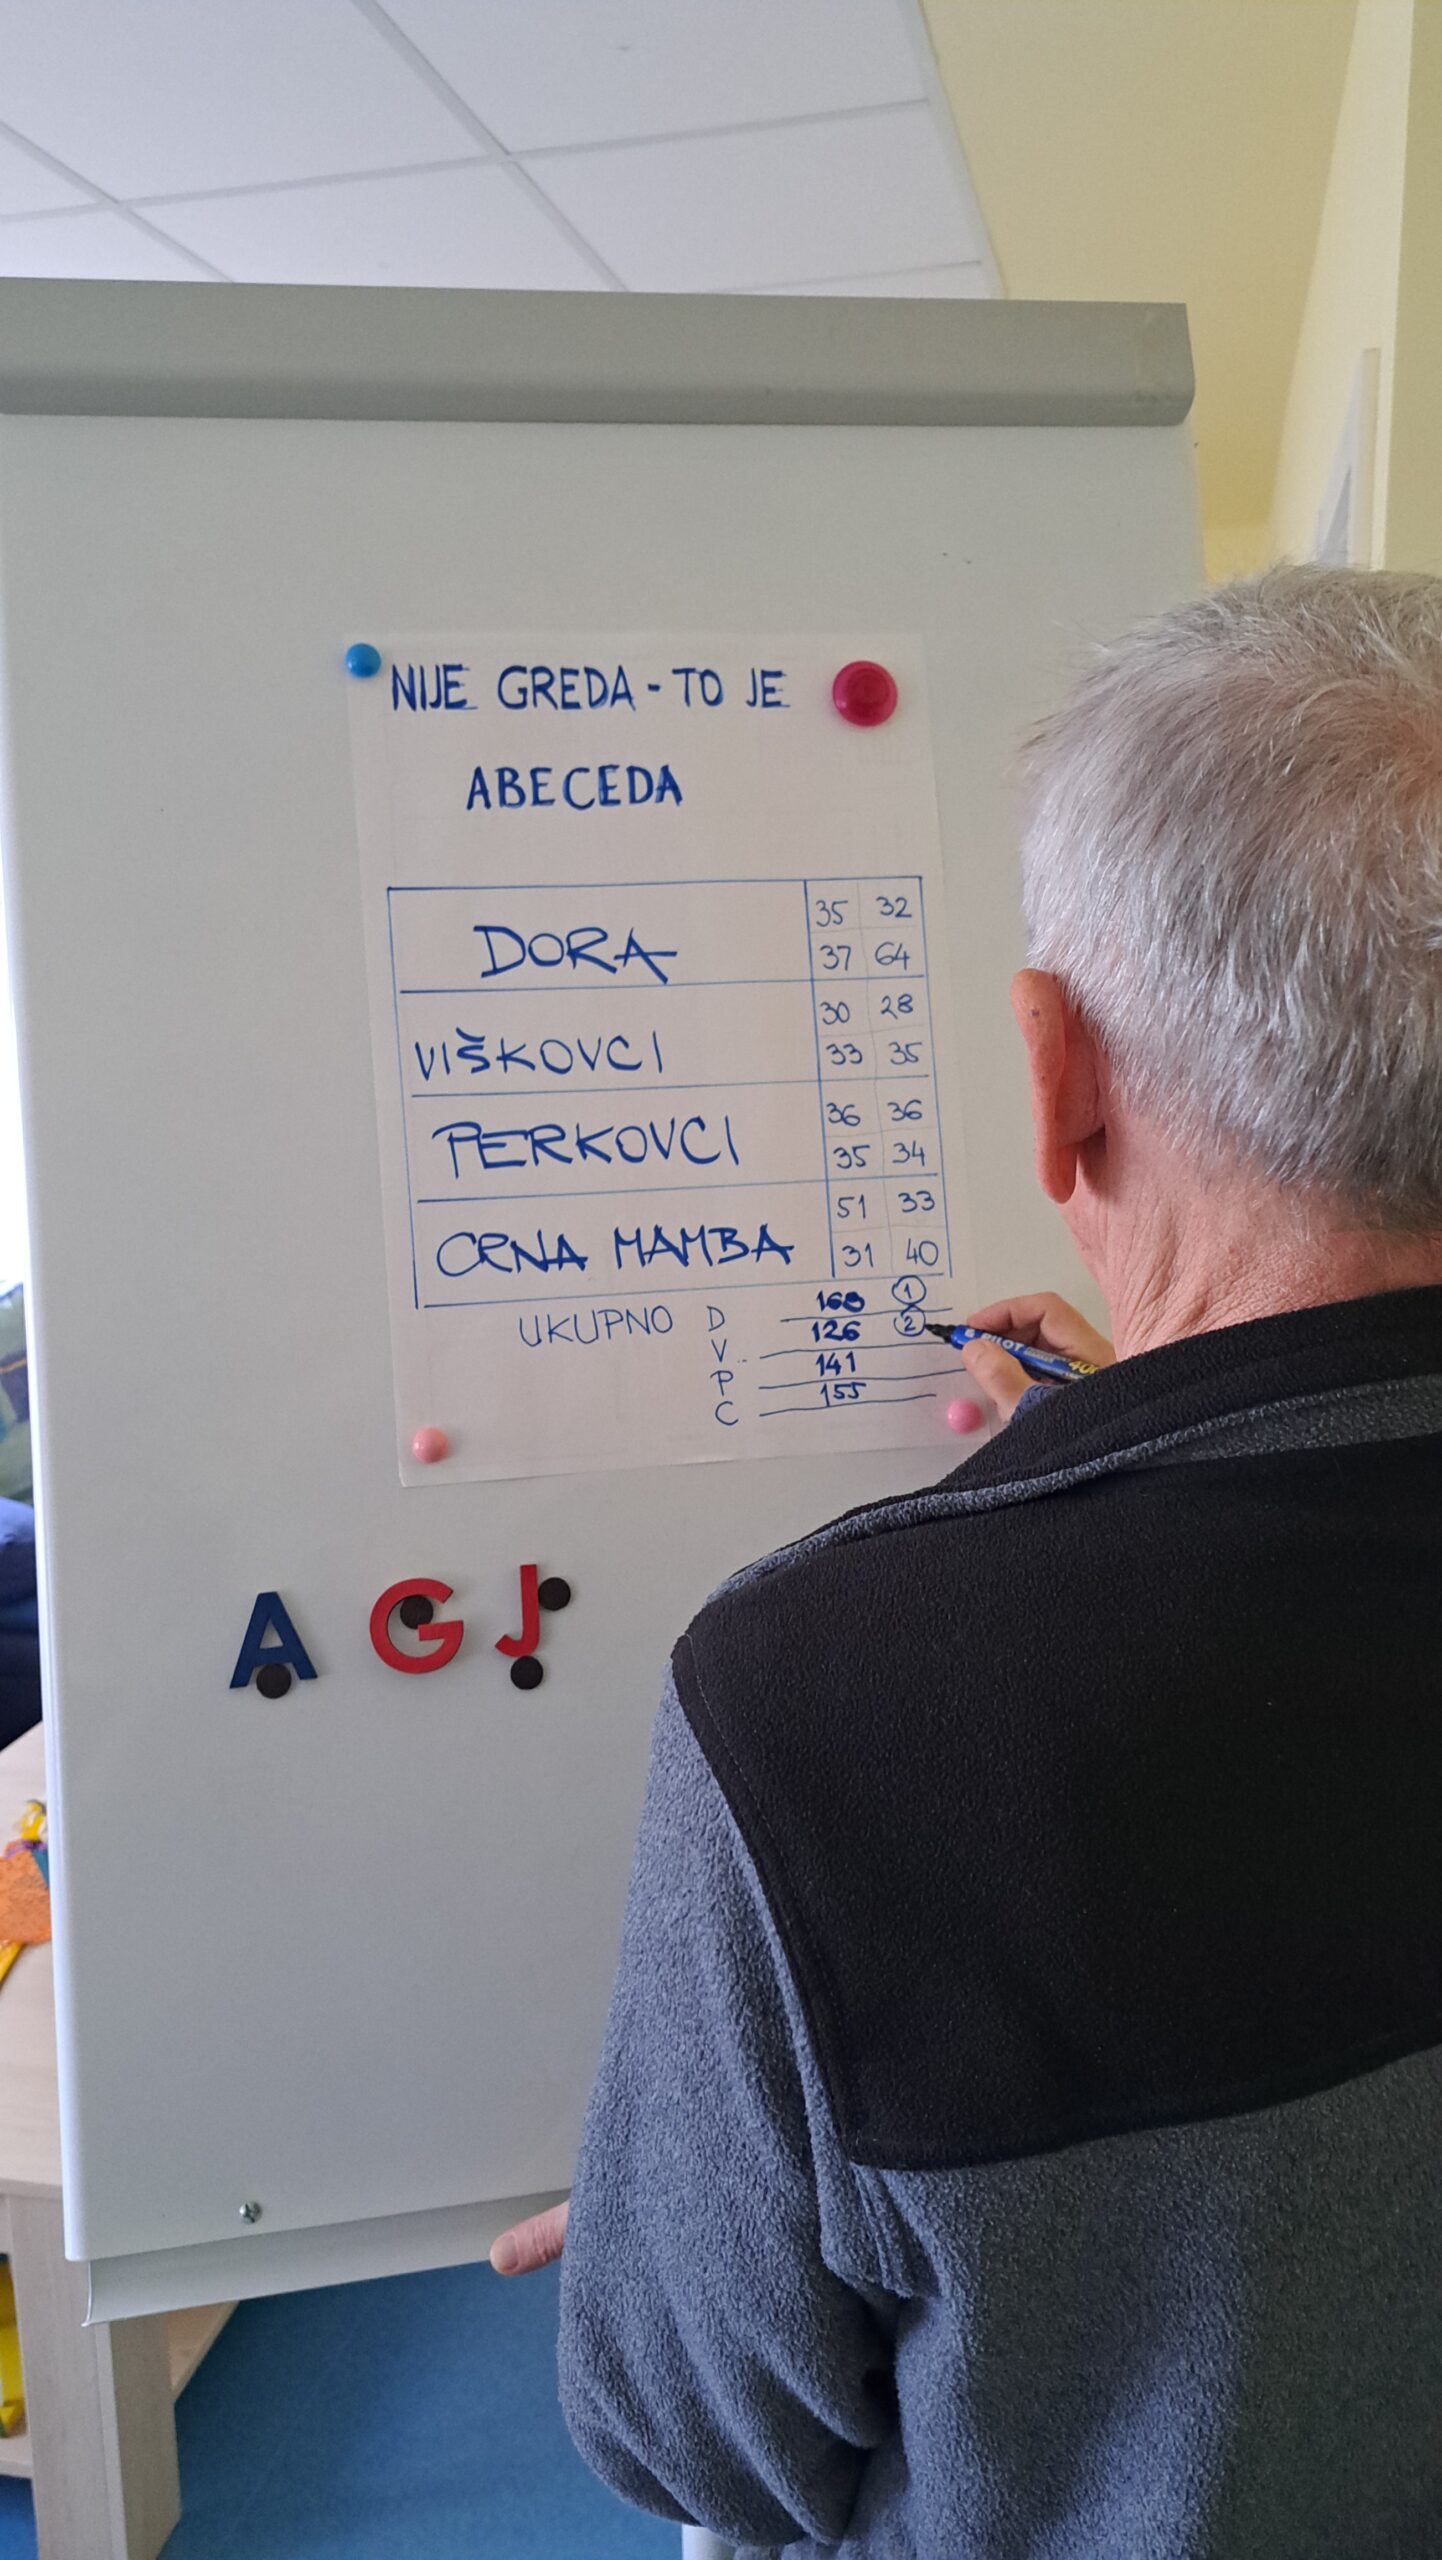 NIJE GREDA - TO JE
ABECEDA
DORA 35 32
37 64
VIŠKOVCI 30 28
33 35
PERKOVCI 36 36
35 34
CRNA MAMBA 51 33
31 40
UKUPNO D 168 1
V.. 126 2
P 141
C 155
PILOT 400
A G J